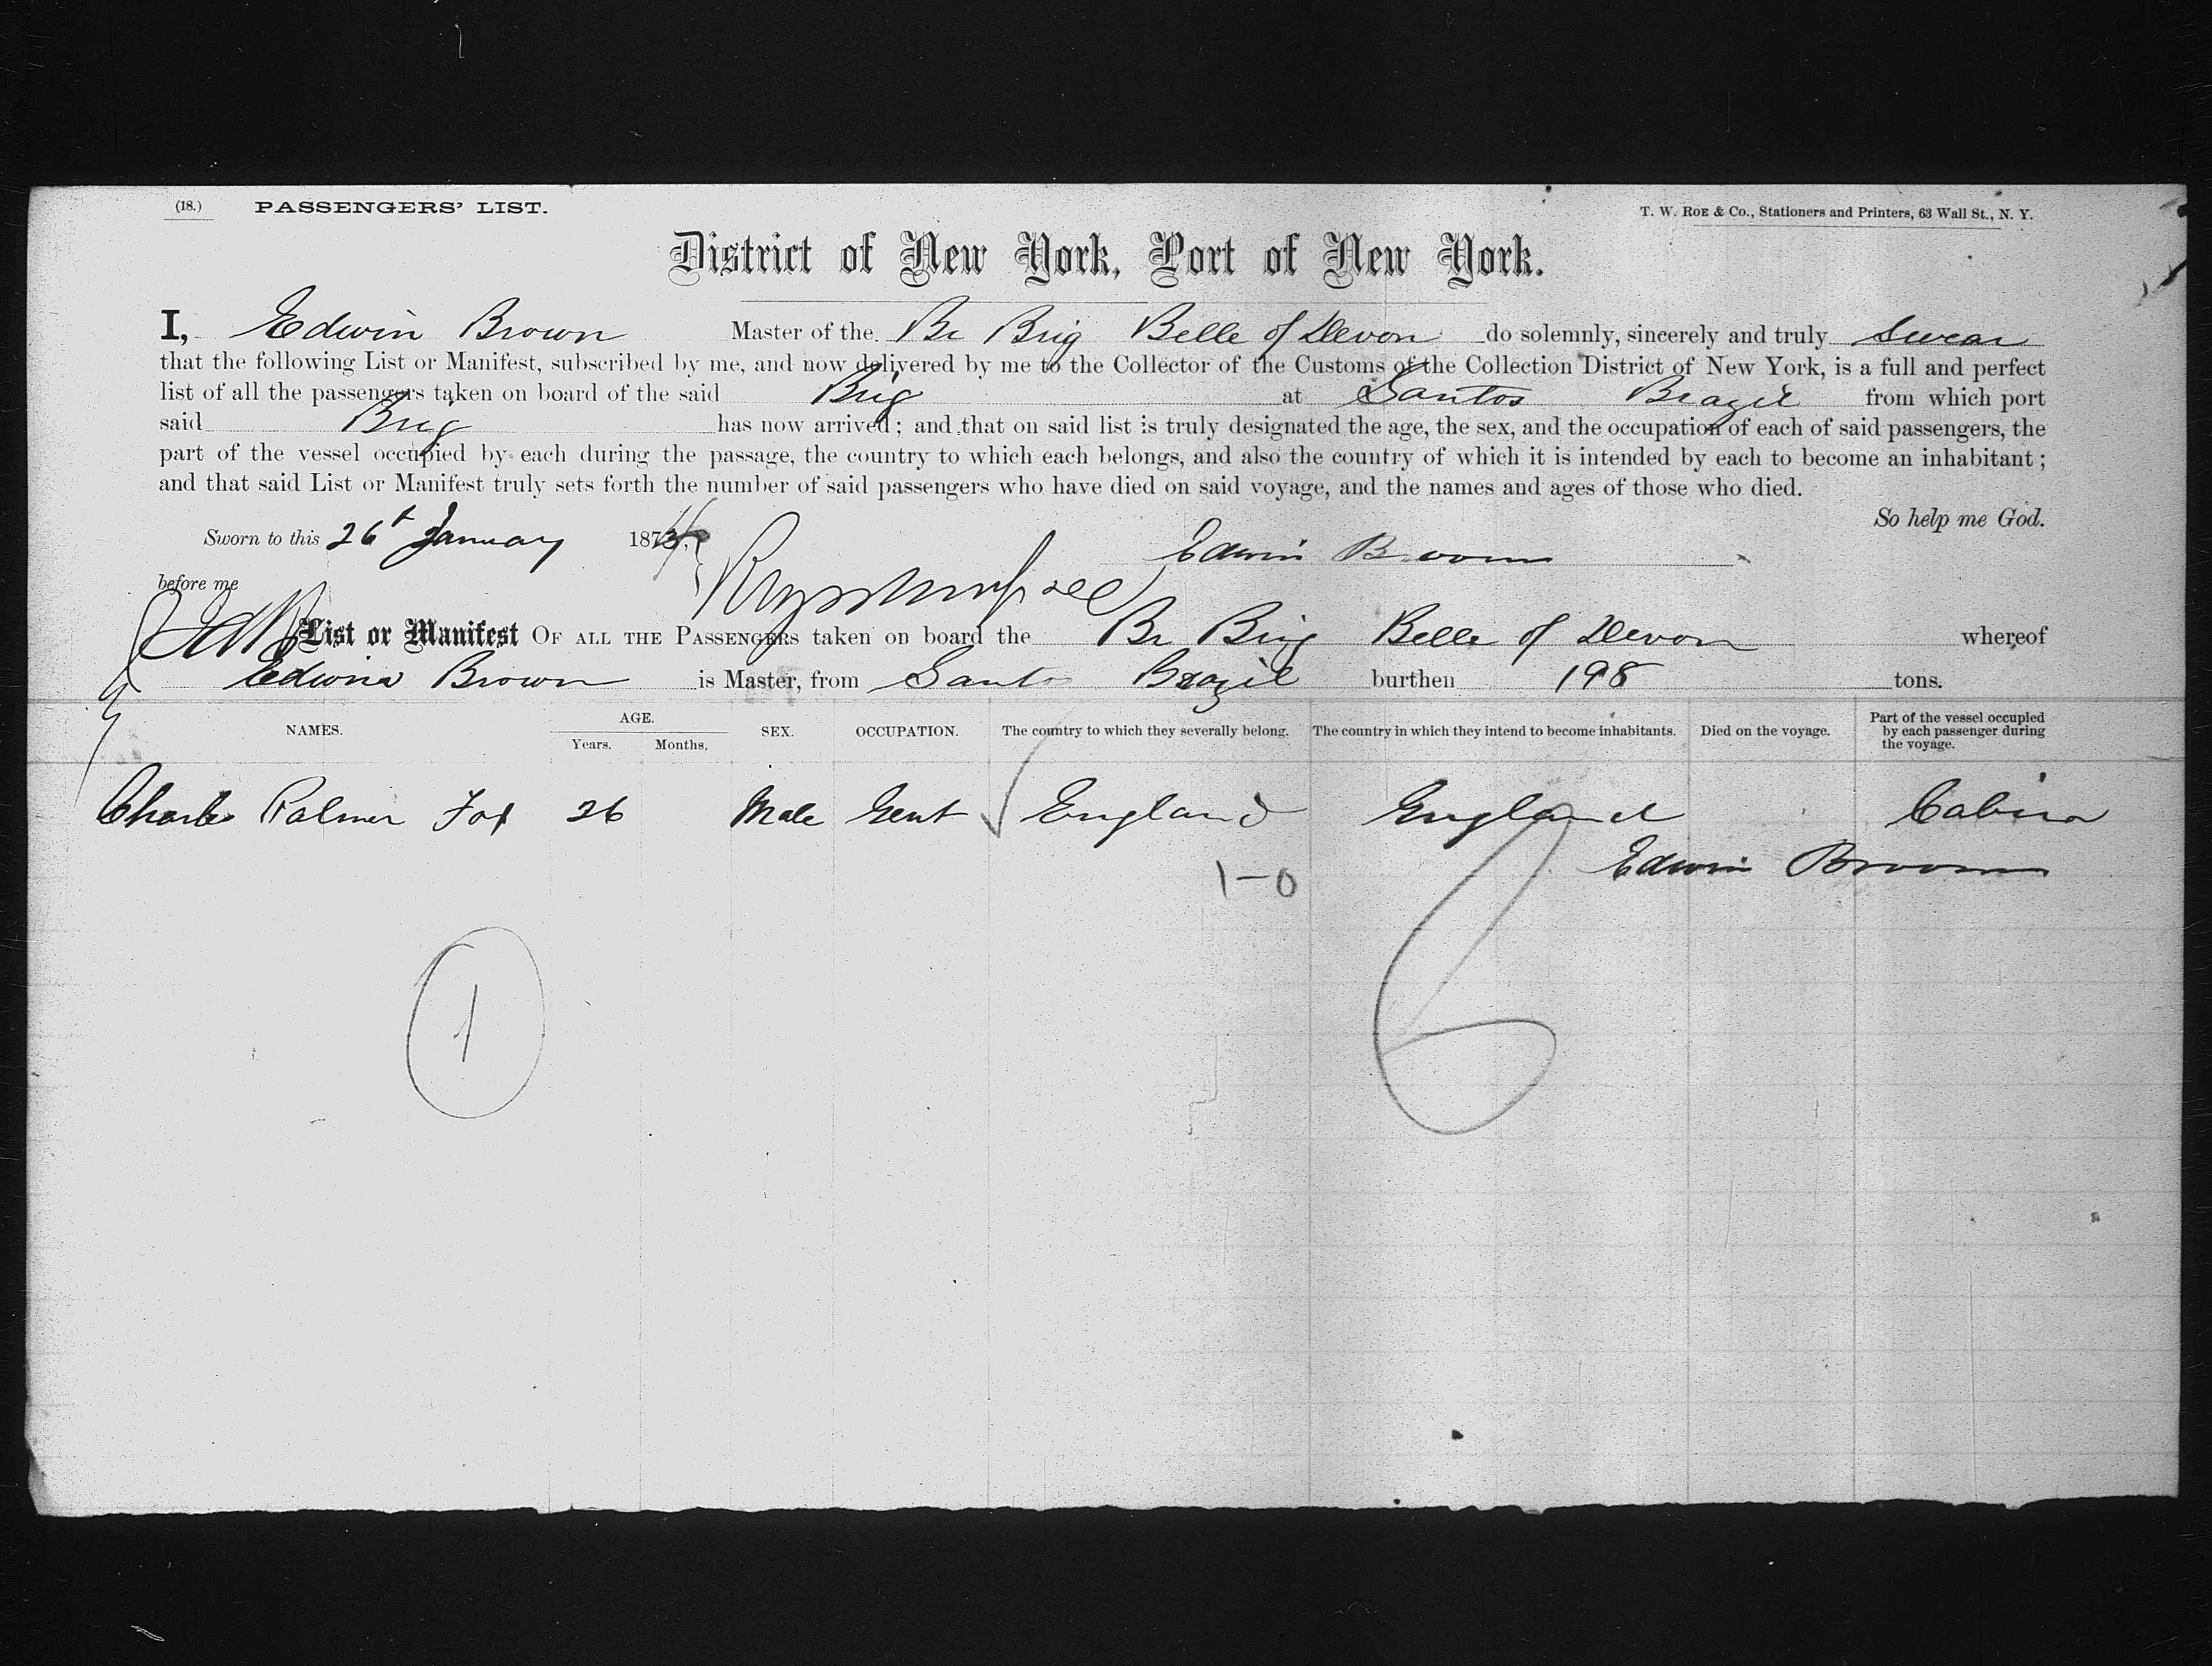 (18.) PASSENGERS' LIST. T. W. ROE & Co., Stationers and Printers, 63 Wall St., N. Y.
District of New York, Port of New York.
I, Edwin Brown Master of the Br Brig Belle of Devon do solemnly, sincerely and truly Swear
that the following List or Manifest, subscribed by me, and now delivered by me to the Collector of the Customs of the Collection District of New York, is a full and perfect
list of all the passengers taken on board of the said Brig at Santos Brazil from which port
said Brig has now arrived; and that on said list is truly designated the age, the sex, and the occupation of each of said passengers, the
part of the vessel occupied by each during the passage, the country to which each belongs, and also the country of which it is intended by each to become an inhabitant;
and that said List or Manifest truly sets forth the number of said passengers who have died on said voyage, and the names and ages of those who died.
So help me God.
Sworn to this 26t January 187
Edwin Brown
before me
List or Manifest OF ALL THE PASSENGERS taken on board the Br Brig Belle of Devon whereof
Edwin Brown is Master, from Santos Brazil burthen 198 tons.
NAMES. AGE. Years. Months, SEX. OCCUPATION. The country to which they severally belong. The country in which they intend to become inhabitants. Died on the voyage. Part of the vessel occupied by each passenger during the voyage.
Charles Palmer Fox 26 Male Gent England England Cabin
Edwin Brown
1-0
1
6